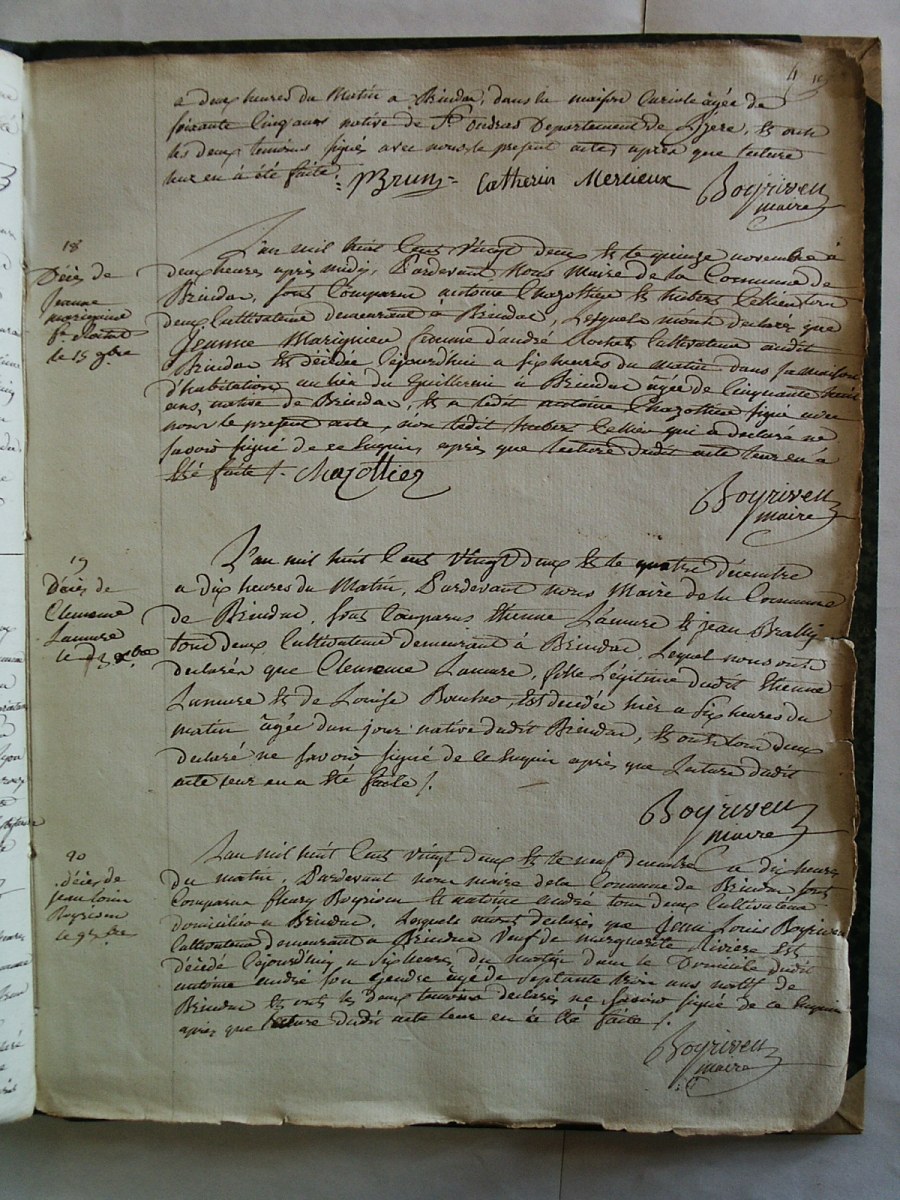 4
a deux heures du Matin a Brindas, dans la maison Curiale âgée de
soixante Cinq ans native de St. ondras Departement de L'izere, Et ont
les deux temoins signé avec nous le present acte, après que lecture
leur en a été faite.
Brun Catherin Mercieux Boyriven
maire
18
Décès de
Jeanne
marignine
fe. 
le 15 9bre
L'an mil huit Cent Vingt deux Et le quinze novembre à
deux heures après midy, Pardevant Nous Maire de la Commune de
Brindas, sont Comparus antoine Chazottier Et hubert Cellier tous
deux Cultivateurs demeurant a Brindas, Lesquels m'ont declaré que
Jeanne Marignier femme d'andré Cultivateur audit
Brindas Est décédée Cejourdhui a six heures du Matin dans sa maison
d'habitation au lieu du Guillermi a Brindas agée de Cinquante
ans, native de Brindas, Et a ledit antoine Chazottier signé avec
nous le present acte, non ledit hubert Cellier qui a declaré ne
savoir signé de ce Enquis, après que lecture dudit acte leur en a
Eté faite /. Chazottier
Boyriven
maire
19
Décès de
Clemence
Lamure
le 3 xbre
L'an mil huit Cent Vingt deux Et le quatre décembre
a dix heures du Matin, Pardevant nous Maire de la Commune
de Brindas, sont Comparus Etienne Lamure Et jean Brally
tous deux Cultivateurs demeurant à Brindas, Lequel nous ont
declaré que Clemence Lamure, fille Légitime dudit Etienne
Lamure Et de Louise Est decedée hier a six heures du
matin âgée d'un jour native dudit Brindas, Et ont tous deux
declaré ne savoir signé de ce Enquis après que Lecture dudit
acte leur en a Eté faite /.
Boyriven
maire
20
décès de
jean louis
Boyriven
le 9 xbre
L'an mil huit Cent vingt deux Et le neuf decembre a dix heures
du matin, Pardevant nous maire de la Commune de Brindas sont
Comparus fleury Boyriven Et antoine andré tous deux Cultivateurs
domiciliés a Brindas, Lesquels m'ont declaré, que Jean Louis Boyriven
Cultivateur demeurant a Brindas Veuf de marguerite Riviere Est
décédé Cejourdhuy a six heures du matin dans le Domicile dudit
antoine andré son gendre âgé de Septante trois ans natif de
Brindas Et ont les deux temoins declarés ne savoir signé de ce Enquis
après que lecture dudit acte leur en a Eté faite /.
Boyriven
maire